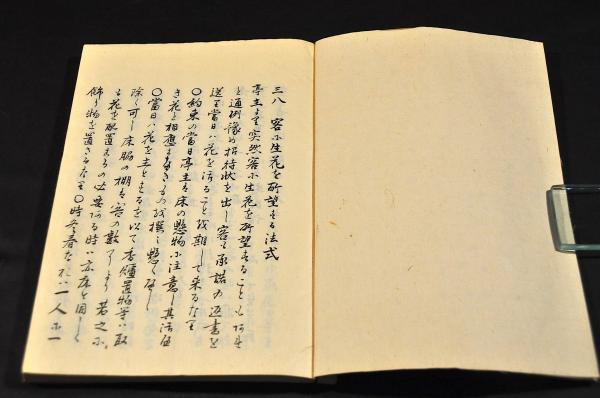 三八 客ニ生花を所望する法式
亭主より突然客ニ生花を所望することもあれ
と通例豫め招待状を出し客も承諾の返書を
送り當日ハ花を活ることを期して来るなり
〇約束の當日亭主ハ床の懸物ニ注意し其活
き花と相應すべきものを撰ミ懸くべし
〇當日ハ花を主とするを以て香爐置物等ハ取
除く可し床脇の棚も客の数により若之ニ
も花を配置するの必要ある時ハ亦床と同しく
飾り物を置きかたり〇時冬春なれハ一人ニ一